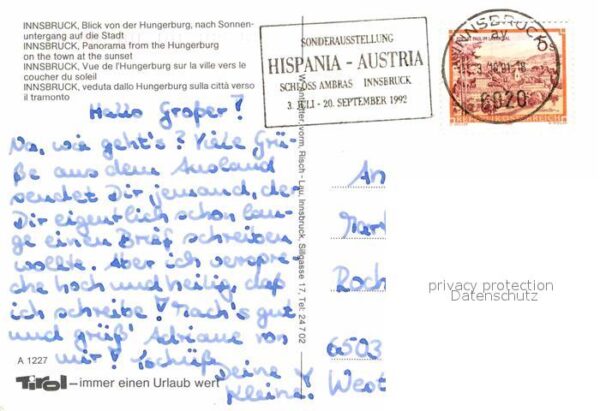 INNSBRUCK, Blick von der Hungerburg, nach Sonnen-
untergang auf die Stadt
INNSBRUCK, Panorama from the Hungerburg
on the town at the sunset
INNSBRUCK, Vue de l'Hungerburg sur la ville vers le
coucher du soleil
INNSBRUCK, veduta dallo Hungerburg sulla città verso
il tramonto
SONDERAUSSTELLUNG
HISPANIA - AUSTRIA
SCHLOSS AMBRAS INNSBRUCK
3. JULI - 20. SEPTEMBER 1992
INNSBRUCK
6020
REPUBLIK ÖSTERREICH
Hallo Großer!
Na, wie geht's? Viele Grü-
ße aus dem Ausland
sendet Dir jemand, der
Dir eigentlich schon lan-
ge einen Brief schreiben
wollte. Aber ich verspre-
che hoch und heilig, daß
ich schreibe! Mach's gut
und grüß' Adriane von
mir! Tschüß
Deine
Kleine!
vorm. Risch - Lau, Innsbruck, Sillgasse 17, Tel: 24 7 02
An
Mar
Roch
6503
West
privacy protection
Datenschutz
A 1227
Tirol – immer einen Urlaub wert